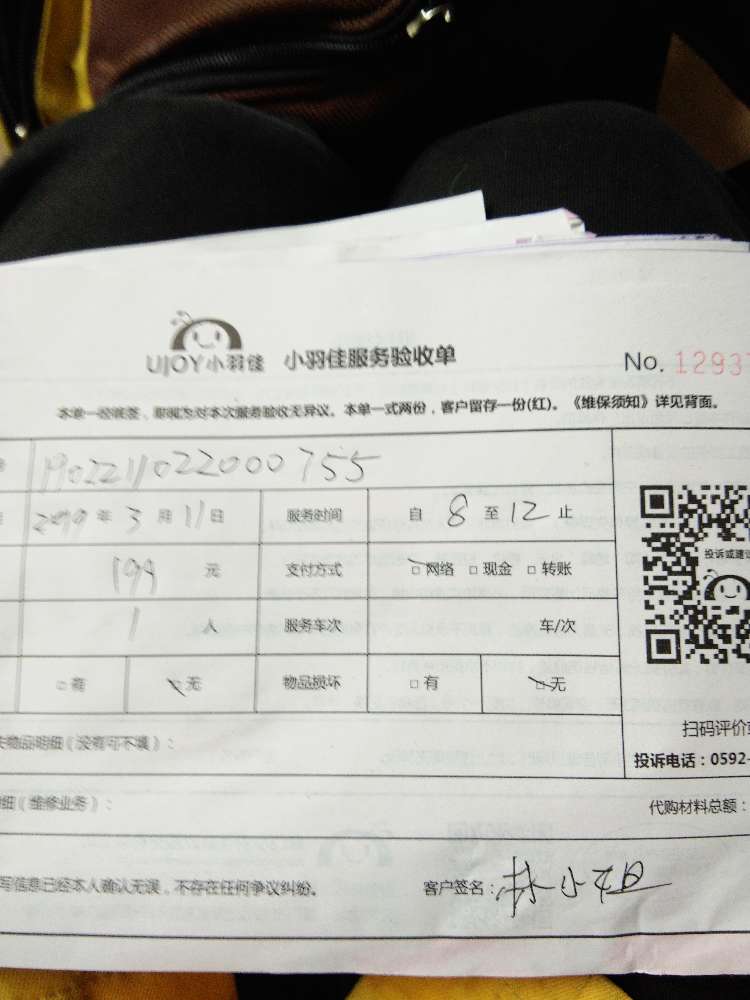 UJOY小羽佳 小羽佳服务验收单 No. 12937
本单一经签签，即视为对本次服务验收无异议。本单一式两份，客户留存一份(红)。《维保须知》详见背面。
190221102200755
2019 年 3 月 11 日 服务时间 自 8 至 12 止
199 元 支付方式 网络 现金 转账
1 人 服务车次 车/次
有 无 物品损坏 有 无
投诉或建议
物品明细（没有可不填）：
扫码评价
投诉电话：0592-
细（维修业务）： 代购材料总额：
写信息已经本人确认无误，不存在任何争议纠纷。 客户签名：林小姐